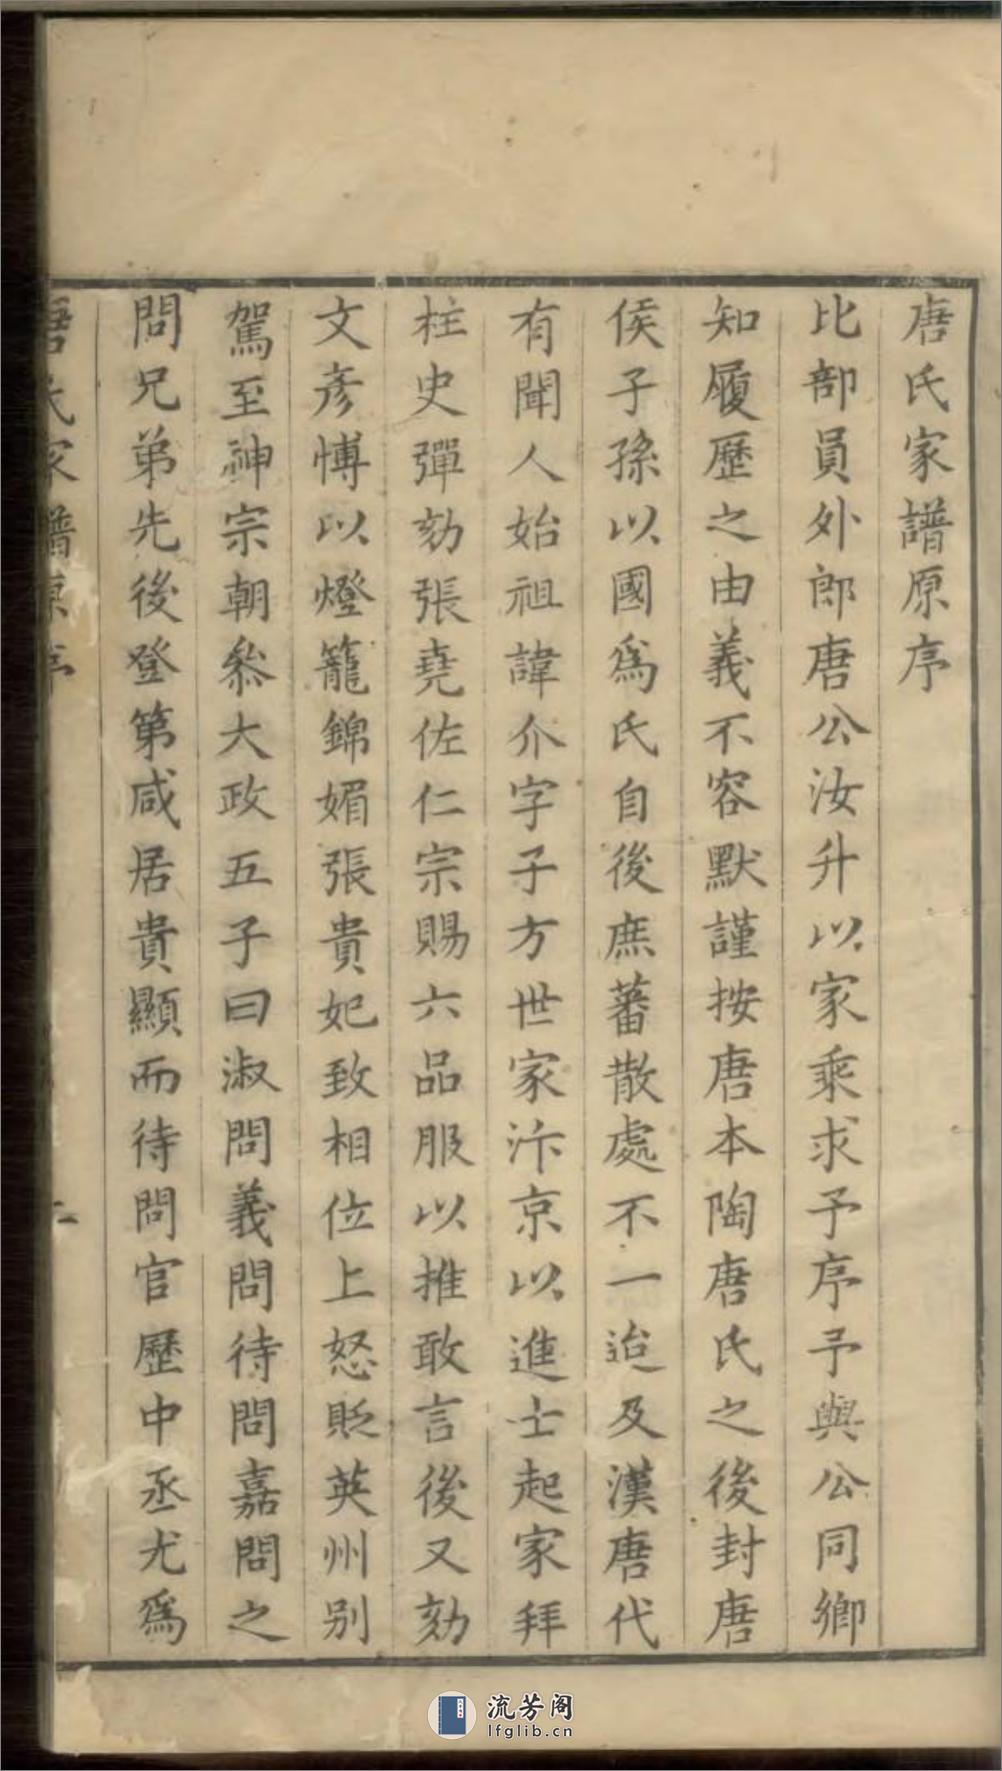 唐氏家譜原序
比部員外郎唐公汝升以家乘求予序予與公同鄉
知履歷之由義不容默謹按唐本陶唐氏之後封唐
侯子孫以國爲氏自後庶蕃散處不一迨及漢唐代
有聞人始祖諱介字子方世家汴京以進士起家拜
柱史彈劾張堯佐仁宗賜六品服以推敢言後又劾
文彥博以燈籠錦媚張貴妃致相位上怒貶英州別
駕至神宗朝叅大政五子曰淑問義問待問嘉問之
問兄弟先後登第咸居貴顯而待問官歷中丞尤爲
唐氏家譜原序
流芳阁
lfglib.cn